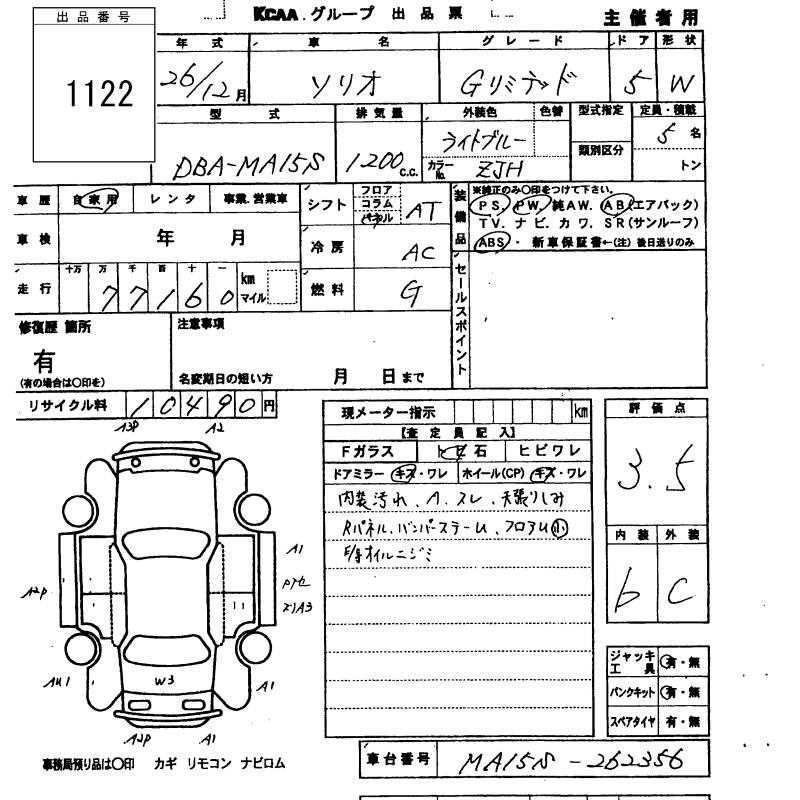 KCAA グループ 出品票
主催者用
出品番号
1122
年式 車名 グレード ドア 形状
26/12月 ソリオ Gリミテッド 5 W
型式 排気量 外装色 色替 型式指定 定員・積載
DBA-MA15S 1200c.c. ライトブルー 5名
カラーNo. ZJH 類別区分 トン
車歴 自家用 レンタ 事業.営業車
シフト フロア コラム パネル AT
車検 年 月
冷房 AC
走行 十万 万 千 百 十 一
77160 km マイル
燃料 G
装備品 ※純正のみ〇印をつけて下さい。
PS. PW. 純AW. AB(エアバック)
TV. ナビ. カワ. SR(サンルーフ)
ABS・ 新車保証書←(注) 後日送りのみ
セールスポイント
修復歴 箇所
有
(有の場合は〇印を)
注意事項
名変期日の短い方 月 日まで
リサイクル料 10490円
現メーター指示 km
【査定員記入】
Fガラス トビ石 ヒビワレ
ドアミラー キズ・ワレ ホイール(CP) キズ・ワレ
内装汚れ、A.スレ、天張りしみ
Rパネル、バンパーステーU、フロアU小
E/gオイルニジミ
評価点
3.5
内装 外装
b C
ジャッキ工具 有・無
パンクキット 有・無
スペアタイヤ 有・無
A2
A1
A2P
A3
W3
A1
A2P A1
事務局預り品は〇印 カギ リモコン ナビロム
車台番号 MA15S-262356